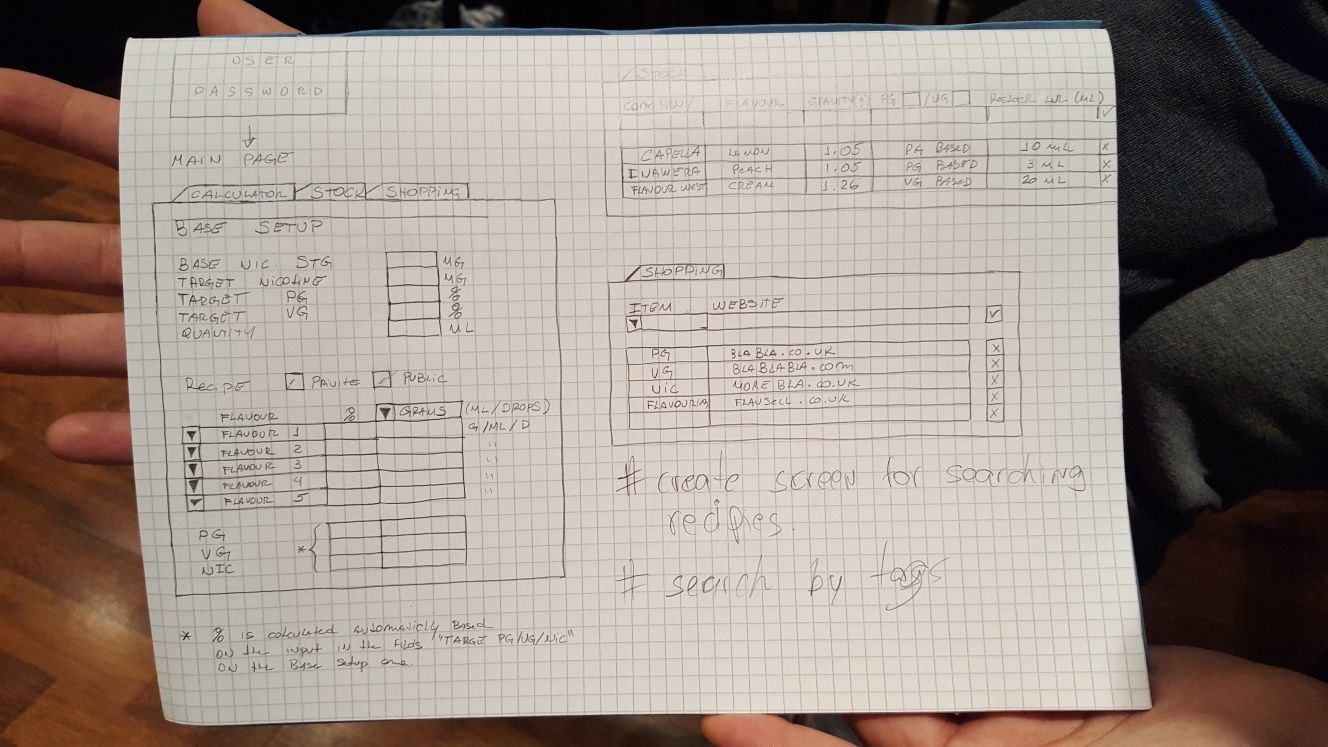 USER
PASSWORD
MAIN PAGE
CALCULATOR STOCK SHOPPING
BASE SETUP
BASE NIC. STG MG
TARGET NICOTINE MG
TARGET PG %
TARGET VG %
QUANTITY ML
RECIPE PRIVATE PUBLIC
FLAVOUR % GRAMS (ML/DROPS)
G/ML/D
FLAVOUR 1
FLAVOUR 2 "
FLAVOUR 3 "
FLAVOUR 4 "
FLAVOUR 5 "
PG
VG *
NIC
* % is calculated AUTOMATICLY BASED
ON the input in the Filds "TARGE PG/VG/Nic"
ON the Base setup one.
STOCK
COMPANY FLAVOUR GRAVITY(?) PG /VG RESTOCK LVL (ML)
CAPELLA LEMON 1.05 PG BASED 10 ML X
INAWERA PEACH 1.05 PG BASED 3 ML X
FLAVOUR WEST CREAM 1.26 VG BASED 20 ML X
SHOPPING
ITEM WEBSITE
PG BLABLA.CO.UK X
VG BLABLABLA.COM X
NIC MOREBLA.CO.UK X
FLAVOURIA FLAVSELL.CO.UK X
X
# create screen for searching
recipies.
# search by tags